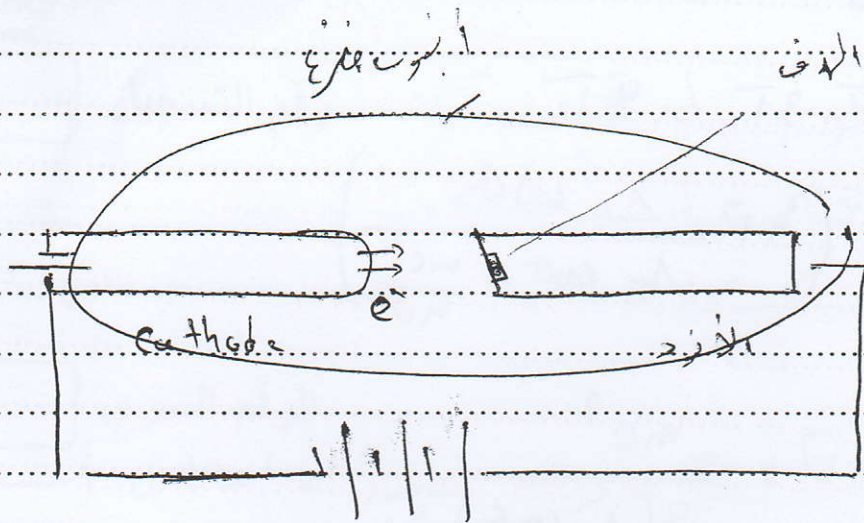 أنبوب مفرغ
الهدف
e⁻
Cathode
الأنود